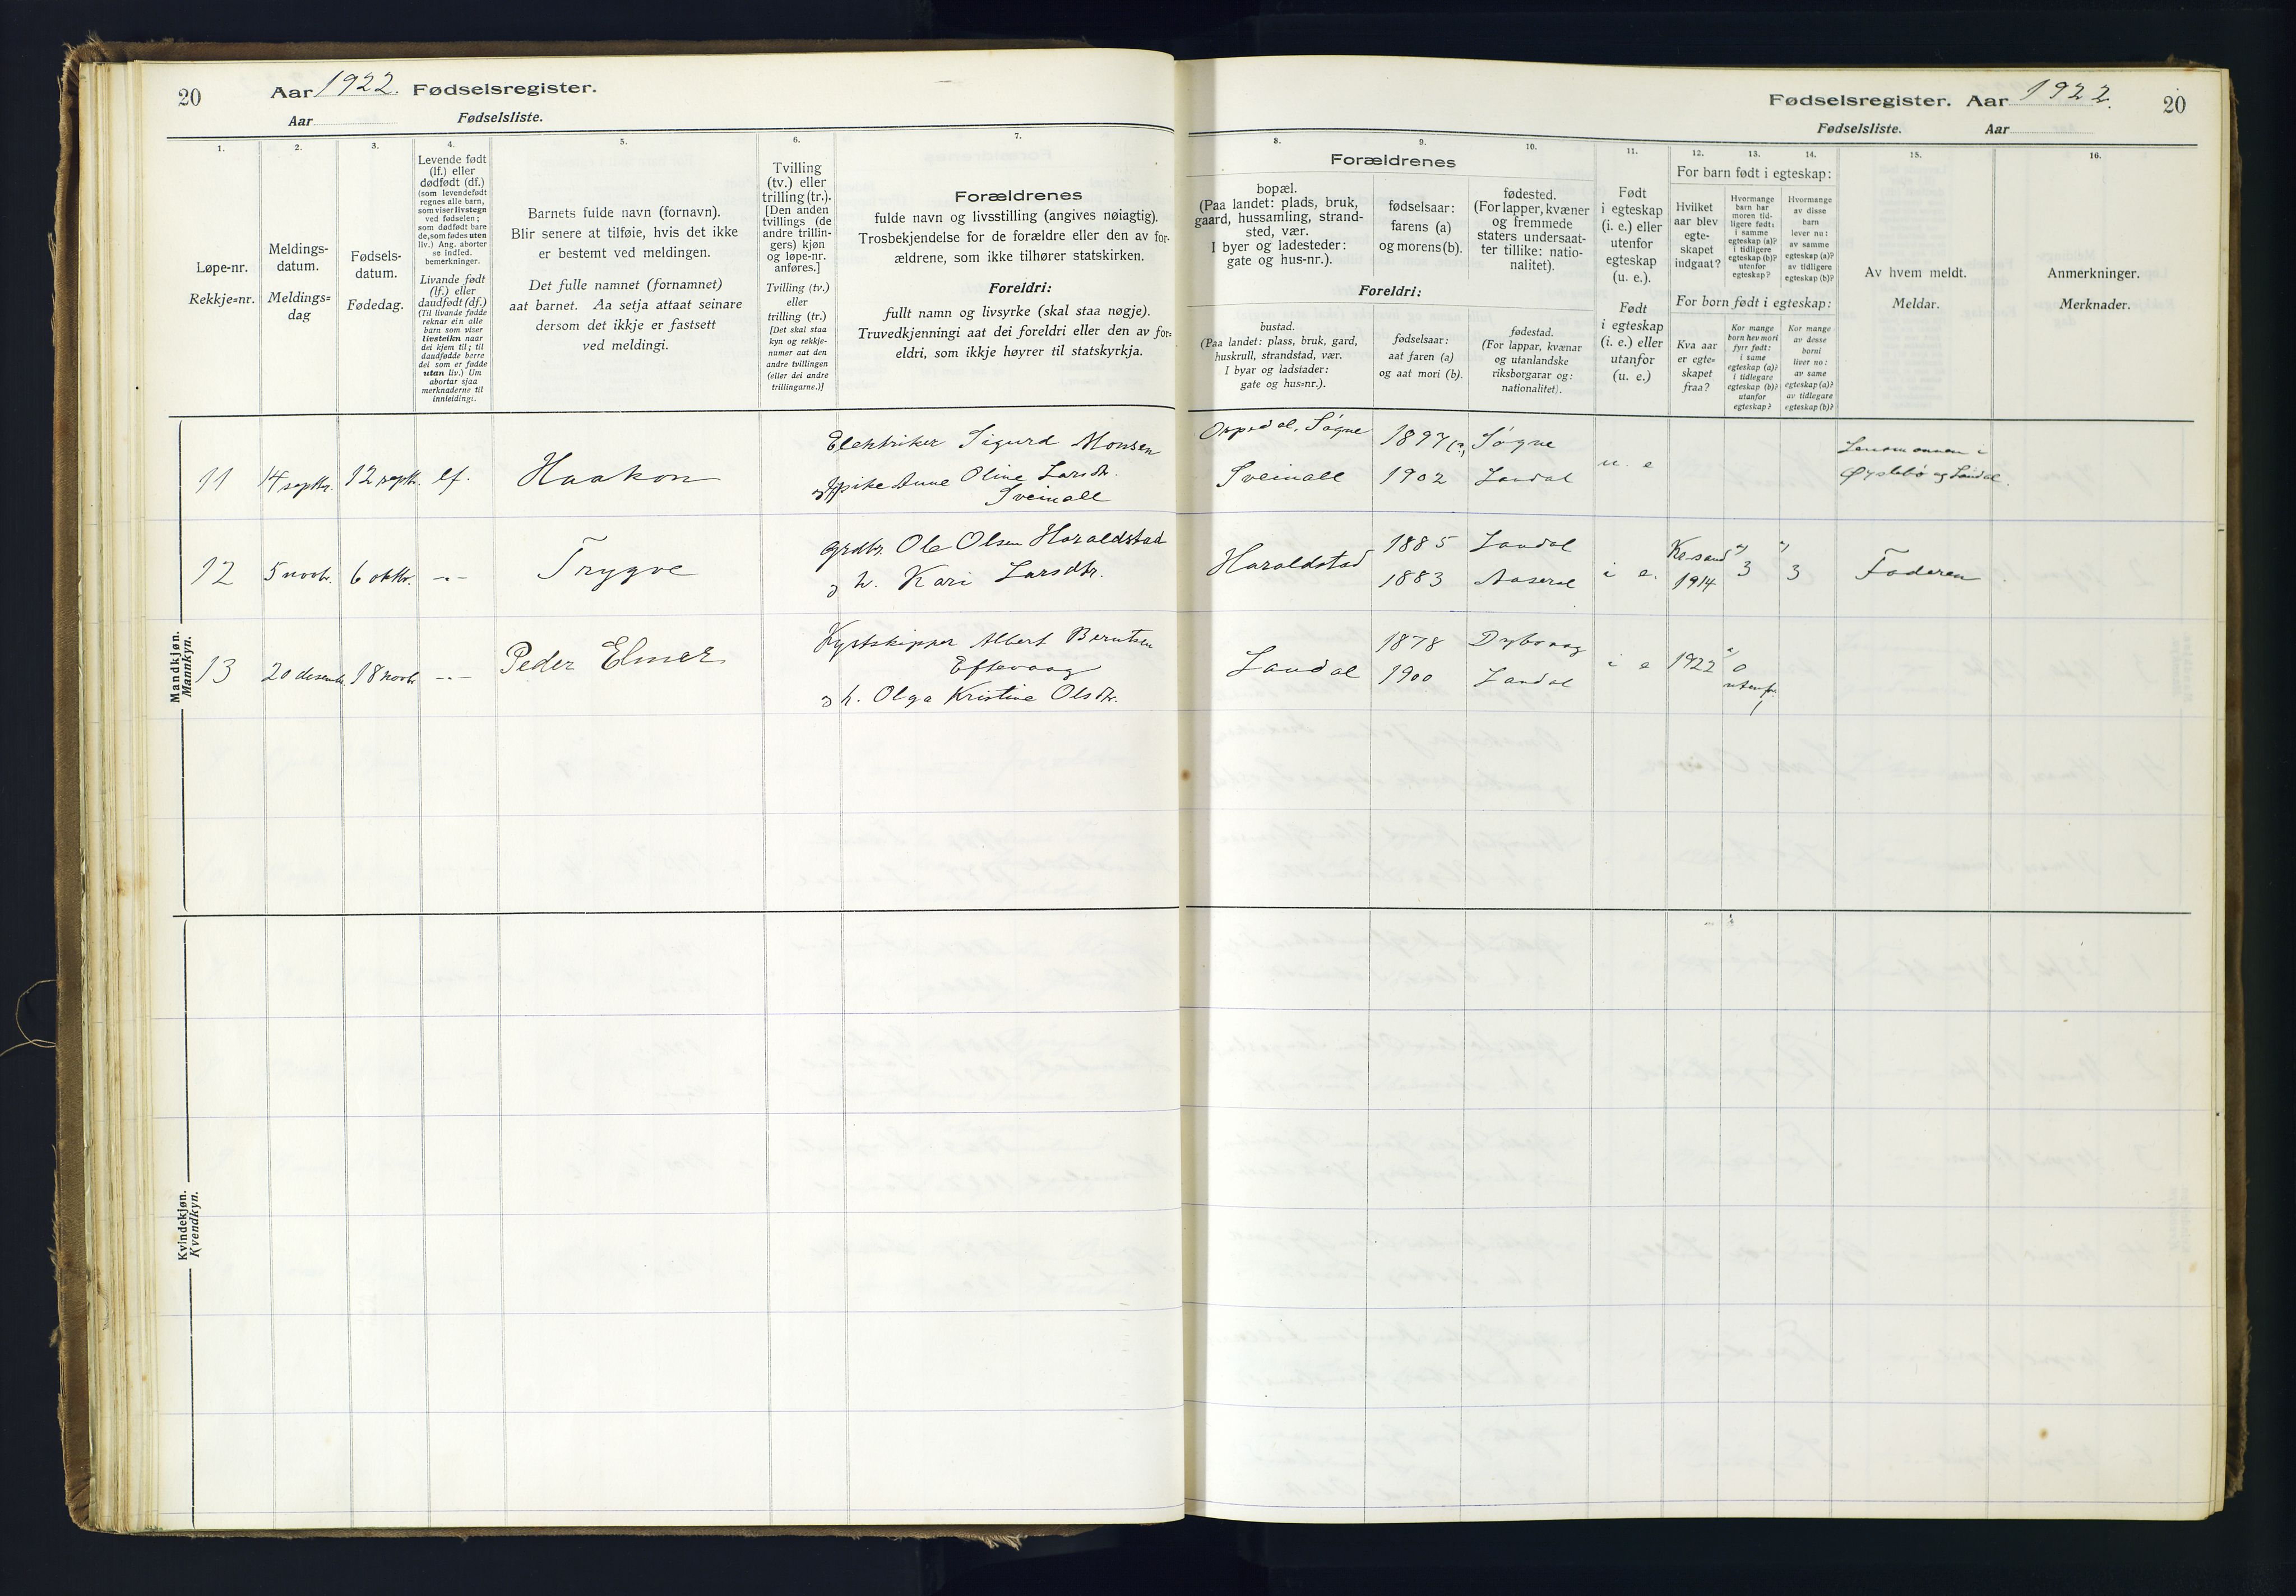 20
Aar 1922. Fødselsregister.
Aar
Fødselsliste.
Fødselsregister. Aar 1922.
20
Fødselsliste.
Aar
1.
Løpe-nr.
Rekkje=nr.
2.
Meldings-
datum.
Meldings=
dag
3.
Fødsels-
datum.
Fødedag.
4.
Levende født
(lf.) eller
dødfødt (df.)
(som levendefødt
regnes alle barn,
som viser livstegn
ved fødselen;
som dødfødt bare
de, som fødes uten
liv.) Ang. aborter
se indled.
bemerkninger.
Livande født
(lf.) eller
daudfødt (df.)
(Til livande fødde
reknar ein alle
barn som viser
livsteikn naar
dei kjem til; til
daudfødde berre
dei som er fødde
utan liv.) Um
abortar sjaa
merknaderne til
innleidingi.
5.
Barnets fulde navn (fornavn).
Blir senere at tilføie, hvis det ikke
er bestemt ved meldingen.
Det fulle namnet (fornamnet)
aat barnet. Aa setja attaat seinare
dersom det ikkje er fastsett
ved meldingi.
6.
Tvilling
(tv.) eller
trilling (tr.).
[Den anden
tvillings (de
andre trillin-
gers) kjøn
og løpe-nr.
anføres.]
Tvilling (tv.)
eller
trilling (tr.)
[Det skal staa
kyn og rekkje-
numer aat den
andre tvillingen
(eller dei andre
trillingarne.)]
7.
Forældrenes
fulde navn og livsstilling (angives nøiagtig).
Trosbekjendelse for de forældre eller den av for-
ældrene, som ikke tilhører statskirken.
Foreldri:
fullt namn og livsyrke (skal staa nøgje).
Truvedkjenningi aat dei foreldri eller den av for=
eldri, som ikkje høyrer til statskyrkja.
8.
Forældrenes
bopæl.
(Paa landet: plads, bruk,
gaard, hussamling, strand-
sted, vær.
I byer og ladesteder:
gate og hus-nr.).
Foreldri:
bustad.
(Paa landet: plass, bruk, gard,
huskrull, strandstad, vær.
I byar og ladstader:
gate og hus=nr.).
9.
fødselsaar:
farens (a)
og morens (b).
fødselsaar:
aat faren (a)
og aat mori (b).
10.
fødested.
(For lapper, kvæner
og fremmede
staters undersaat-
ter tillike: natio-
nalitet).
fødestad.
(For lappar, kvænar
og utanlandske
riksborgarar og:
nationalitet).
11.
Født
i egteskap
(i. e.) eller
utenfor
egteskap
(u. e.).
Født
i egteskap
(i. e.) eller
utanfor
egteskap
(u. e.)
12.
13.
14.
For barn født i egteskap:
Hvilket
aar blev
egte-
skapet
indgaat?
Hvormange
barn har
moren tid-
ligere født:
i samme
egteskap (a)?
i tidligere
egteskap (b)?
utenfor
egteskap?
Hvormange
av disse
barn
lever nu:
av samme
egteskap (a)?
av tidligere
egteskap (b)?
For born født i egteskap:
Kva aar
er egte=
skapet
fraa?
Kor mange
born hev mori
fyrr født:
i same
egteskap (a)?
i tidlegare
egteskap (b)?
utanfor
egteskap?
Kor mange
av desse
borni
liver no:
av same
egteskap (a)?
av tidlegare
egteskap (b)?
15.
Av hvem meldt.
Meldar.
16.
Anmerkninger.
Merknader.
Mandkjøn.
Mannkyn.
11 14 septbr. 12 septbr. lf. Haakon
Elektriker Sigurd Monsen
pike Anne Oline Larsdtr.
Sveinall
Søgne 1897 Søgne
Sveinall 1902 Laudal
u. e
Lensmannen i
Øyslebø og Laudal.
12 5 novbr. 6 oktbr. -"- Trygve
Grdbr. Ole Olsen Haraldstad
o h. Kari Larsdtr.
Haraldstad 1885 Laudal
1883 Aaseral
i e. Kr.sand 1914 a) 3 a) 3 Faderen
13 20 desembr. 18 novbr -"- Peder Elmer
Kystskipper Albert Berntsen
Eftevaag
o h. Olga Kristine Olsdtr.
Laudal 1878 Dybvaag
1900 Laudal
i e 1922 a) 0
utenf.
1
Kvindekjøn.
Kvendkyn.